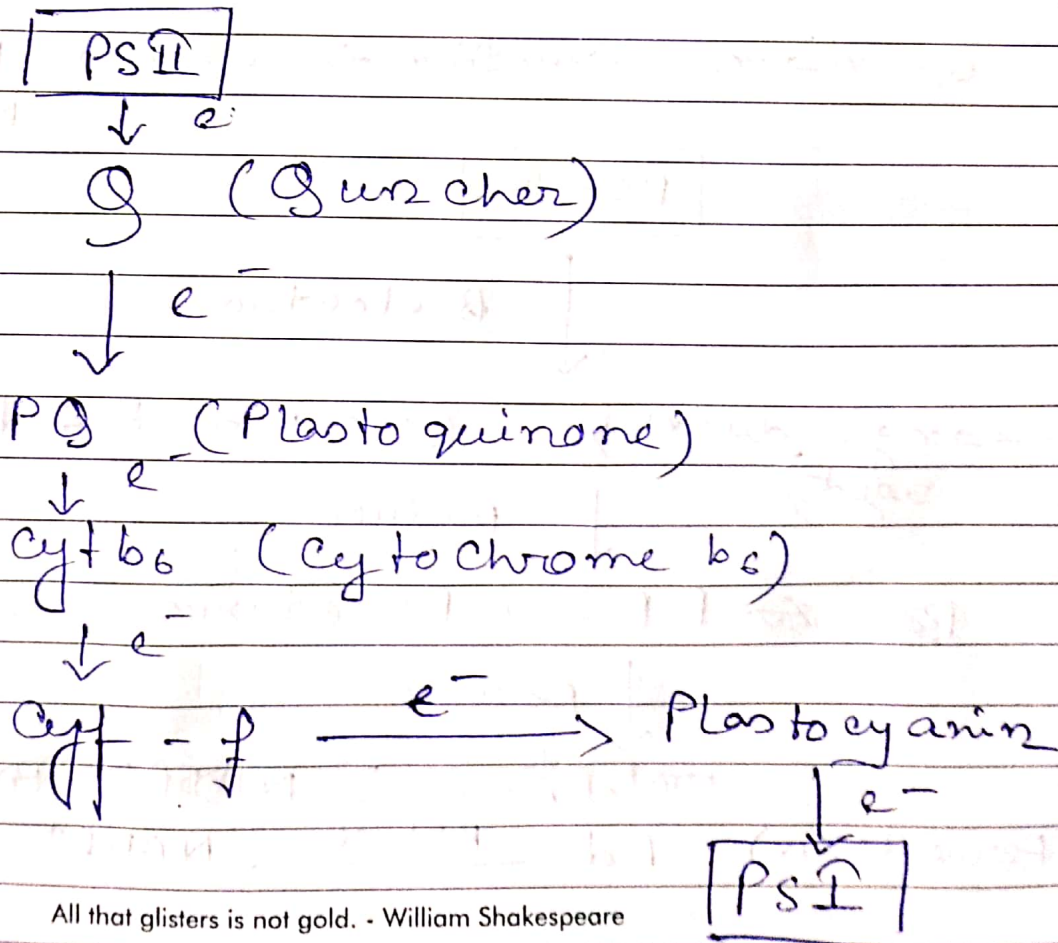 PS II
↓ e
Q (Quncher)
↓ e⁻
PQ (Plastoquinone)
↓ e⁻
Cyt b₆ (Cytochrome b₆)
↓ e⁻
Cyt - f —e⁻→ Plastocyanin
↓ e⁻
PS I
All that glisters is not gold. - William Shakespeare